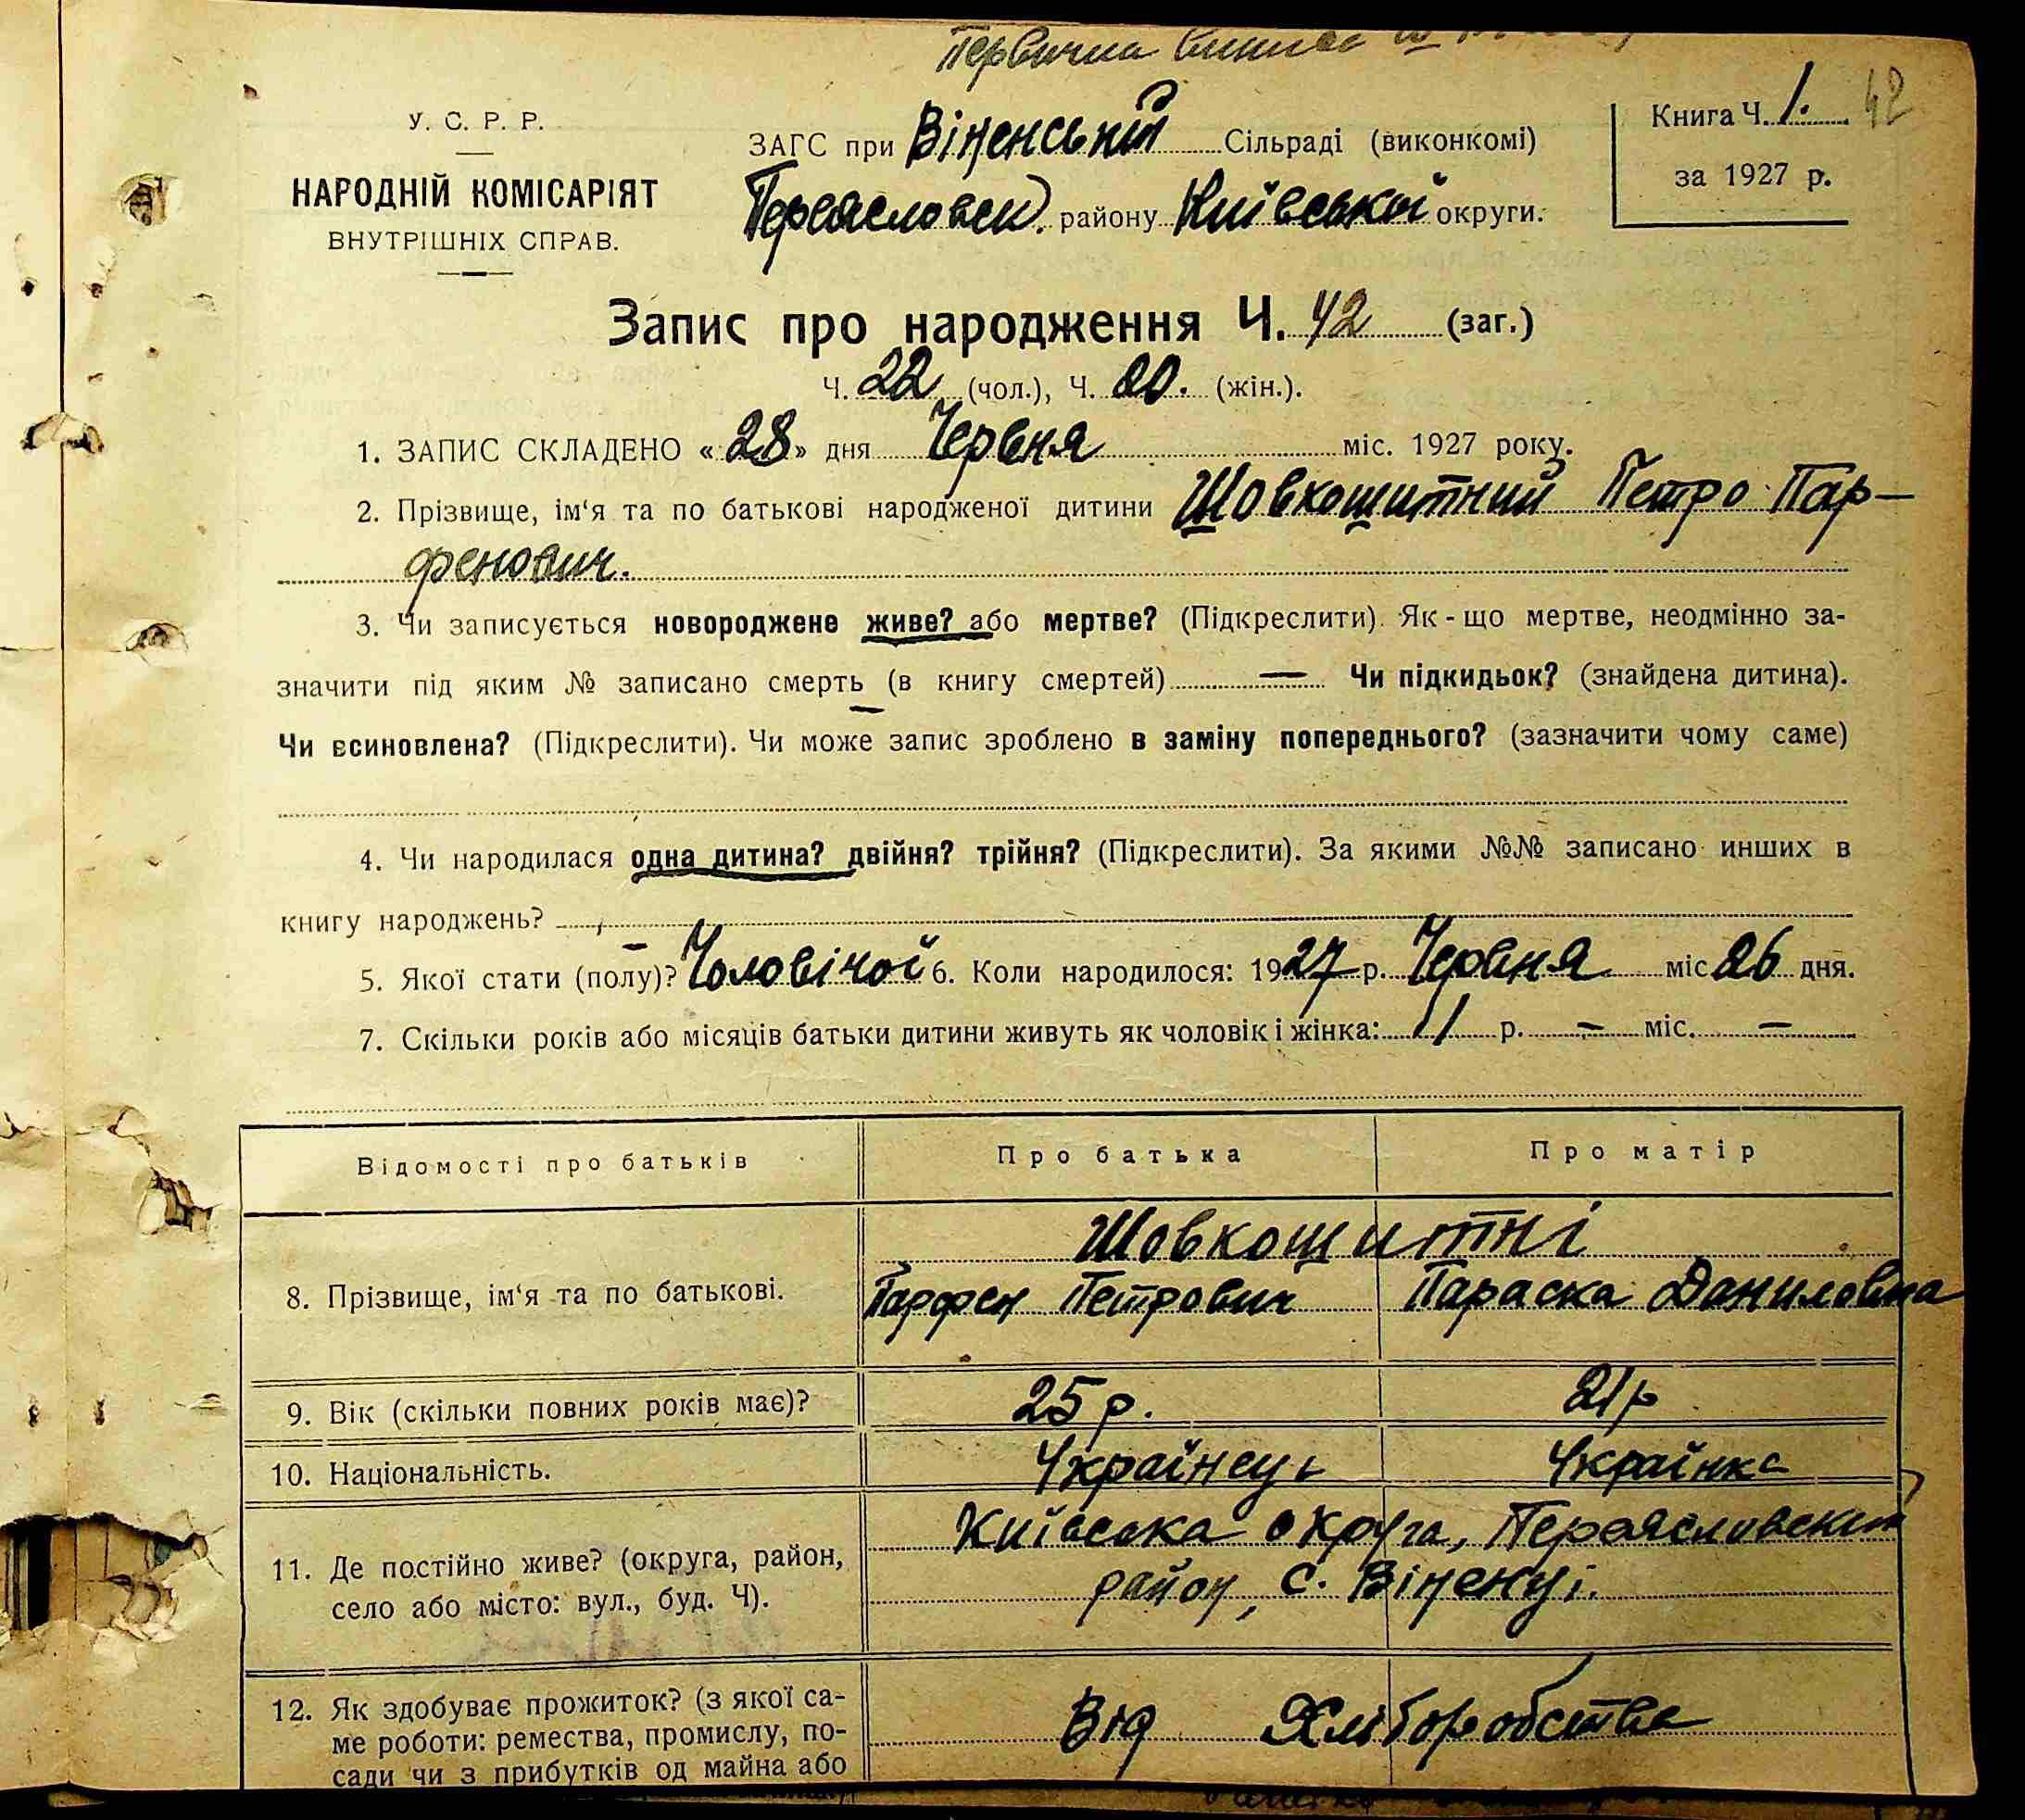 Первична
У. С. Р. Р.
НАРОДНІЙ КОМІСАРІЯТ
ВНУТРІШНІХ СПРАВ.
ЗАГС при Віненській Сільраді (виконкомі)
Переясловськ. району Київської округи.
Книга Ч. 1. 42
за 1927 р.
Запис про народження Ч. 42 (заг.)
Ч. 22 (чол.), Ч. 20. (жін.).
1. ЗАПИС СКЛАДЕНО «28» дня Червня міс. 1927 року.
2. Прізвище, ім‘я та по батькові народженої дитини Шовкошитний Петро Пар–
фенович.
3. Чи записується новороджене живе? або мертве? (Підкреслити). Як - що мертве, неодмінно за-
значити під яким № записано смерть (в книгу смертей) — Чи підкидьок? (знайдена дитина).
Чи всиновлена? (Підкреслити). Чи може запис зроблено в заміну попереднього? (зазначити чому саме)
4. Чи народилася одна дитина? двійня? трійня? (Підкреслити). За якими №№ записано инших в
книгу народжень? –
5. Якої стати (полу)? Чоловічої 6. Коли народилося: 1927 р. Червня міс 26 дня.
7. Скільки років або місяців батьки дитини живуть як чоловік і жінка: 11 р. – міс. –
Відомості про батьків Про батька Про матір
Шовкошитні
8. Прізвище, ім‘я та по батькові. Парфен Петрович Параска Даниловна
9. Вік (скільки повних років має)? 25 р. 21 р
10. Національність. Українець Українка
Київська округа, Переясловський
11. Де постійно живе? (округа, район,
район, с. Віненці.
село або місто: вул., буд. Ч).
12. Як здобуває прожиток? (з якої са-
Від Хліборобства
ме роботи: ремества, промислу, по-
сади чи з прибутків од майна або